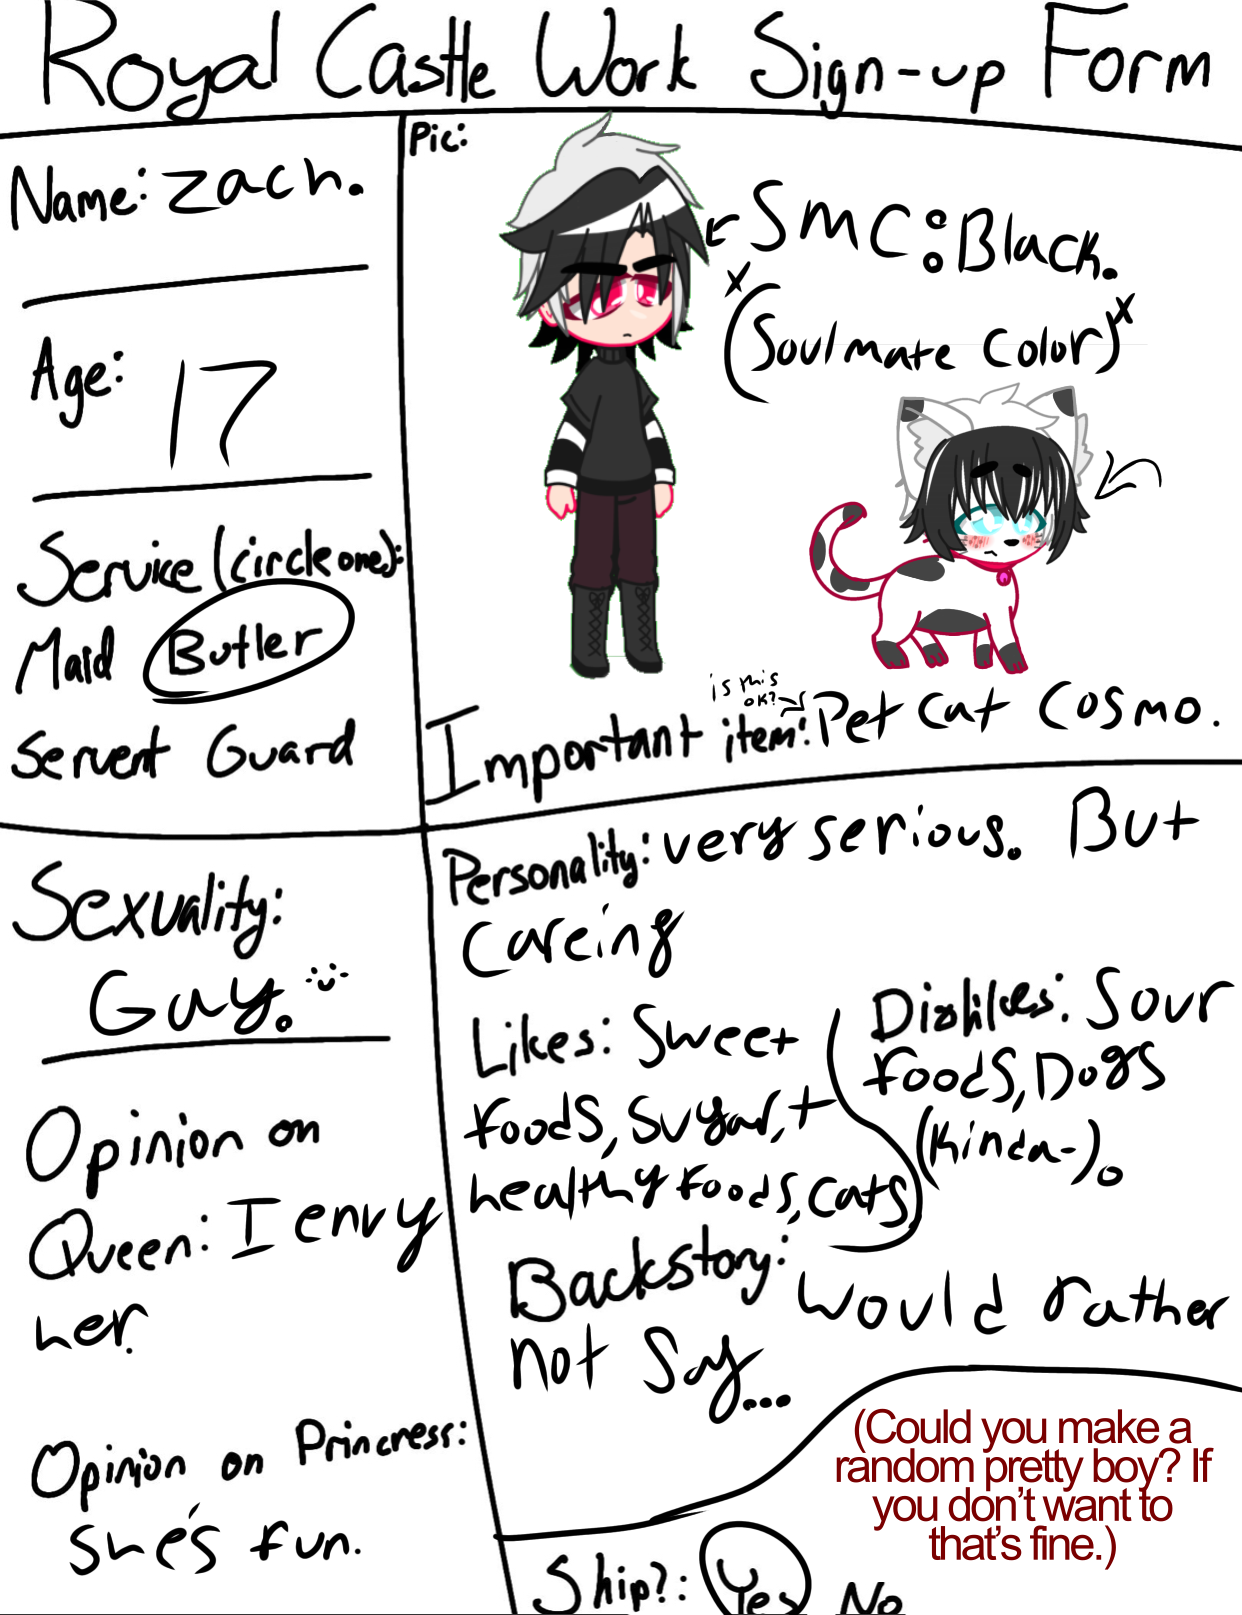 Royal Castle Work Sign-up Form
Name: Zach.
Age: 17
Service (circle one):
Maid Butler
Servent Guard
Pic:
SMC: Black.
(Soulmate Color)
is this
ok?
Important item: Pet cat Cosmo.
Sexuality:
Gay.
Opinion on
Queen: I envy
her.
Opinion on Princress:
She's fun.
Personality: very serious. But
Careing
Likes: Sweet
foods, Sugar, +
healthy foods, Cats
Dislikes: Sour
foods, Dogs
(Kinda-).
Backstory: Would rather
not Say...
(Could you make a
random pretty boy? If
you don't want to
that's fine.)
Ship?: Yes No